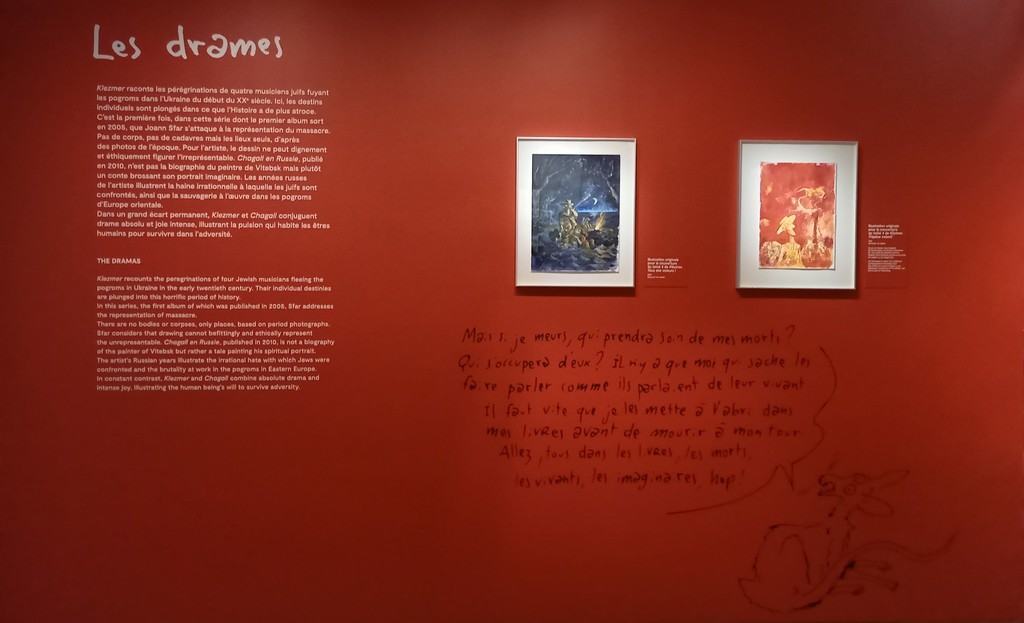 Les drames
Klezmer raconte les pérégrinations de quatre musiciens juifs fuyant
les pogroms dans l'Ukraine du début du XXe siècle. Ici, les destins
individuels sont plongés dans ce que l'Histoire a de plus atroce.
C'est la première fois, dans cette série dont le premier album sort
en 2005, que Joann Sfar s'attaque à la représentation du massacre.
Pas de corps, pas de cadavres mais les lieux seuls, d'après
des photos de l'époque. Pour l'artiste, le dessin ne peut dignement
et éthiquement figurer l'irreprésentable. Chagall en Russie, publié
en 2010, n'est pas la biographie du peintre de Vitebsk mais plutôt
un conte brossant son portrait imaginaire. Les années russes
de l'artiste illustrent la haine irrationnelle à laquelle les juifs sont
confrontés, ainsi que la sauvagerie à l'œuvre dans les pogroms
d'Europe orientale.
Dans un grand écart permanent, Klezmer et Chagall conjuguent
drame absolu et joie intense, illustrant la pulsion qui habite les êtres
humains pour survivre dans l'adversité.
THE DRAMAS
Klezmer recounts the peregrinations of four Jewish musicians fleeing the
pogroms in Ukraine in the early twentieth century. Their individual destinies
are plunged into this horrific period of history.
In this series, the first album of which was published in 2005, Sfar addresses
the representation of massacre.
There are no bodies or corpses, only places, based on period photographs.
Sfar considers that drawing cannot befittingly and ethically represent
the unrepresentable. Chagall en Russie, published in 2010, is not a biography
of the painter of Vitebsk but rather a tale painting his spiritual portrait.
The artist's Russian years illustrate the irrational hate with which Jews were
confronted and the brutality at work in the pogroms in Eastern Europe.
In constant contrast, Klezmer and Chagall combine absolute drama and
intense joy, illustrating the human being's will to survive adversity.
Illustration originale
pour la couverture
du tome 3 de Klezmer,
Tous des voleurs !
Illustration originale
pour la couverture
du tome 4 de Klezmer,
Trapèze volant !
Mais si je meurs, qui prendra soin de mes morts ?
Qui s'occupera d'eux ? Il n'y a que moi qui sache les
faire parler comme ils parlaient de leur vivant
Il faut vite que je les mette à l'abri dans
mes livres avant de mourir à mon tour
Allez, tous dans les livres, les morts,
les vivants, les imaginaires, hop !